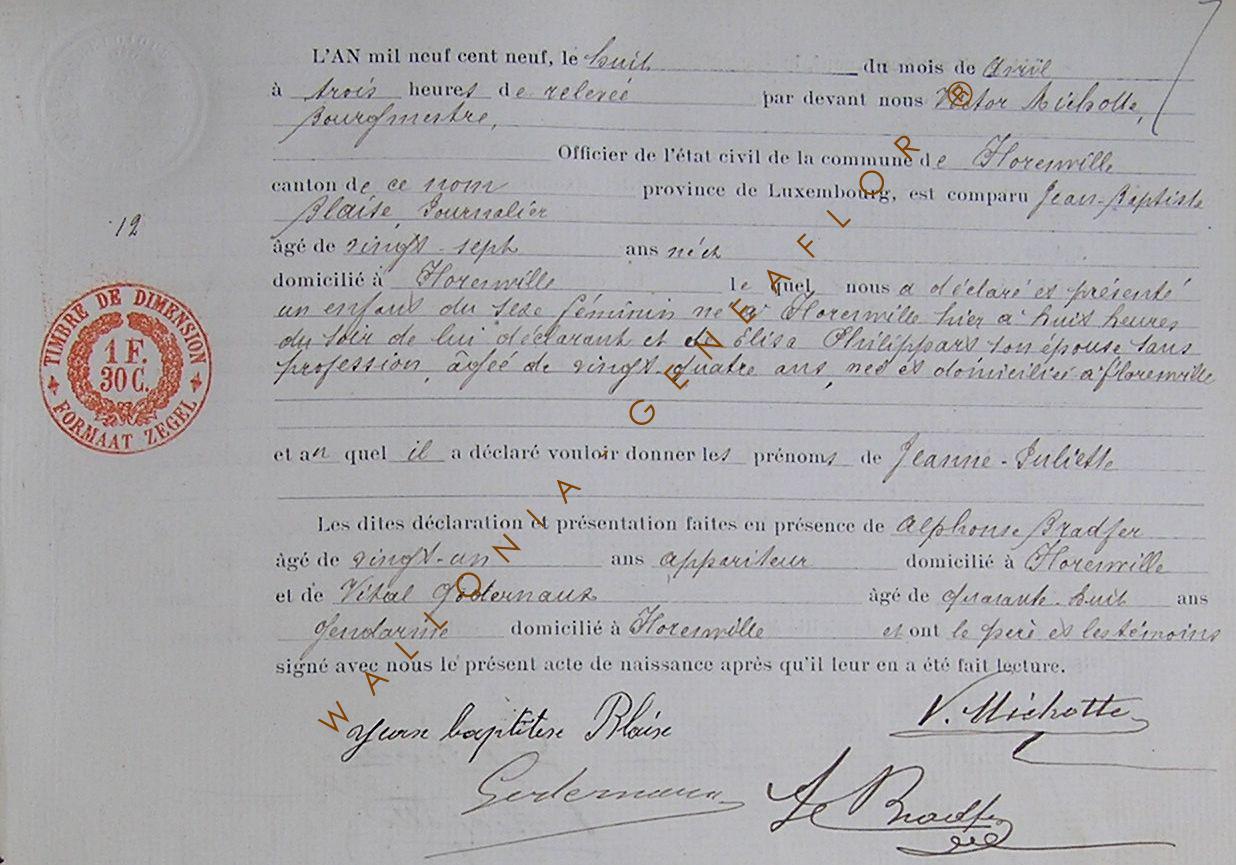 L'AN mil neuf cent neuf, le huit du mois de Avril
à trois heures de relevée par devant nous Victor Michotte,
Bourgmestre,
Officier de l'état civil de la commune de Florenville
canton de ce nom province de Luxembourg, est comparu Jean-Baptiste
Blaise Journalier
12
âgé de vingt-sept ans né et
domicilié à Florenville le quel nous a déclaré et présenté
un enfant du sexe féminin né à Florenville hier à huit heures
du soir de lui déclarant et de Elisa Philippart son épouse sans
profession, âgée de vingt-quatre ans, née et domiciliée à Florenville
TIMBRE DE DIMENSION
1 F.
30 C.
FORMAAT ZEGEL
et au quel il a déclaré vouloir donner les prénoms de Jeanne-Juliette
Les dites déclaration et présentation faites en présence de Alphonse Bradfer
âgé de vingt-un ans appariteur domicilié à Florenville
et de Vital Godernaux âgé de quarante-huit ans
Gendarme domicilié à Florenville et ont le père et les témoins
signé avec nous le présent acte de naissance après qu'il leur en a été fait lecture.
V. Michotte
baptitse Blaise
Bradfer
WALLONIA GENEAFLOR ®